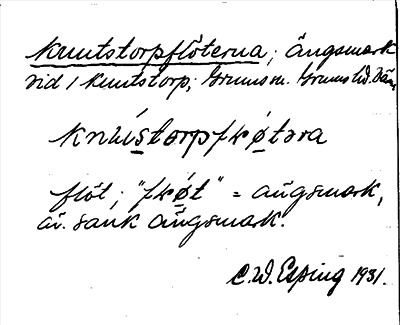 Knutstorpflöterna; ängsmark
vid 1 Knutstorp; Grums sn. Grums hd. Vän
knústorpfkøtəra
flöt; "fkøt" = ängsmark,
äv. sank ängsmark.
C.W. Esping 1931.